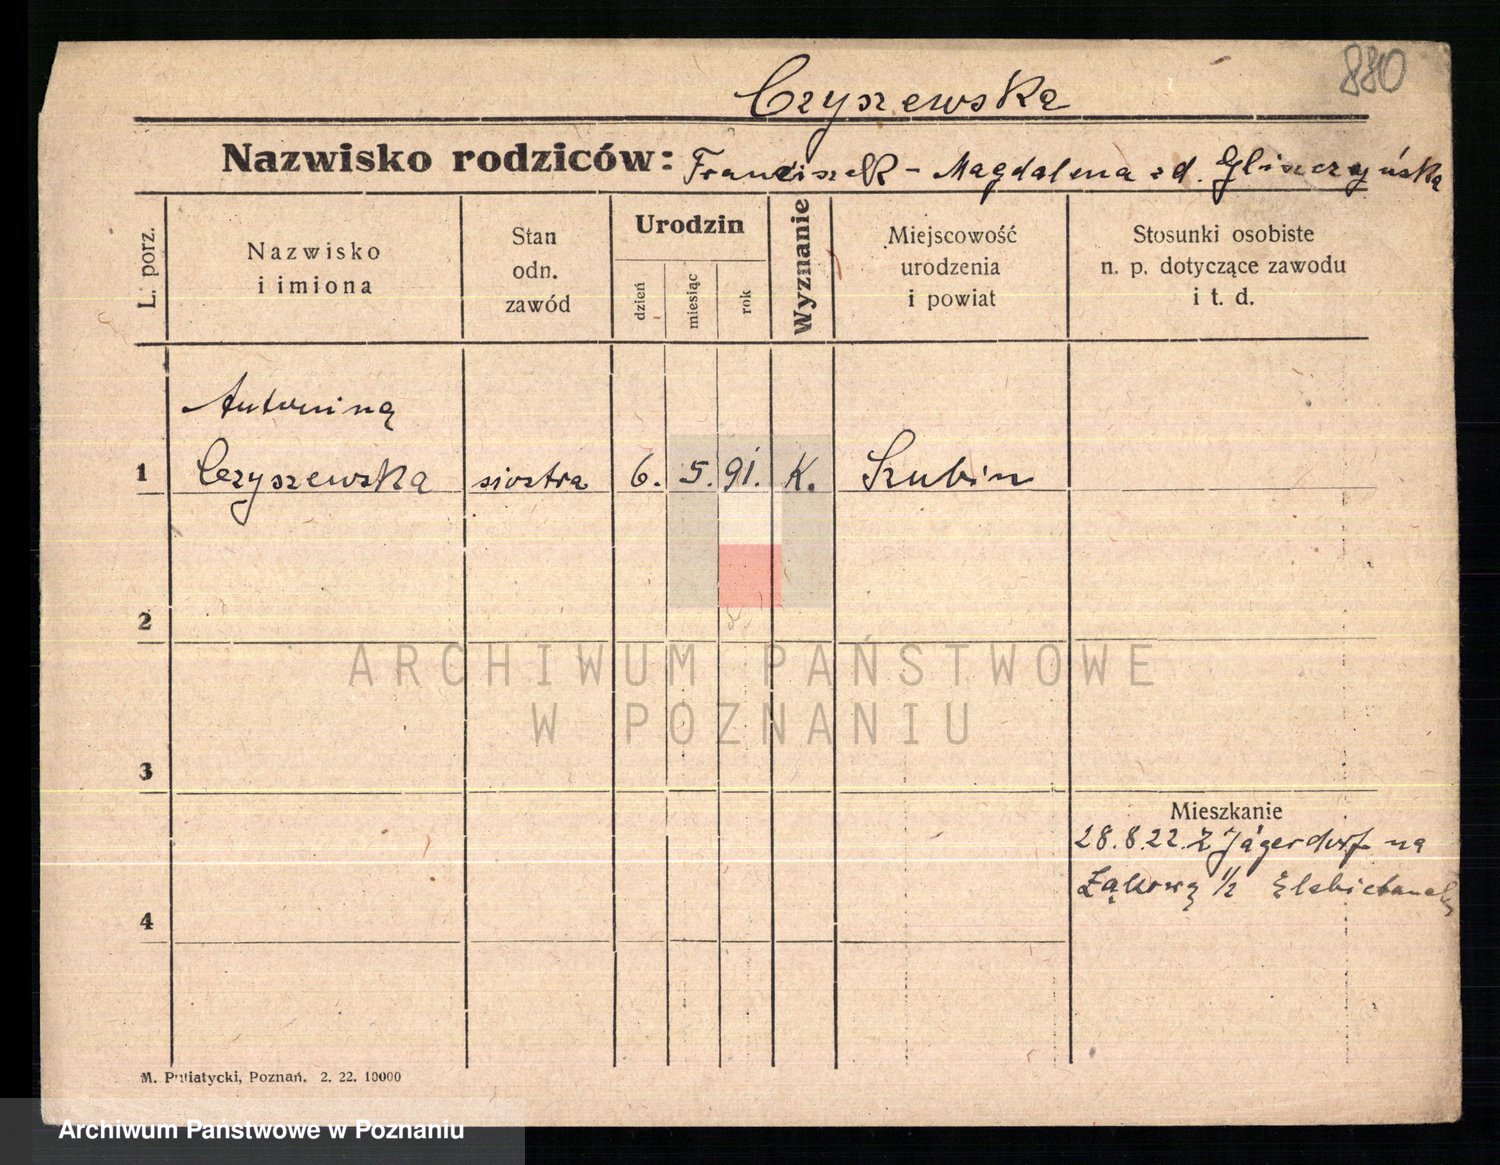 880
Czyszewska
Nazwisko rodziców: Franciszek - Magdalena z d. Gliszczyńska
L. porz.
Nazwisko
i imiona
Stan
odn.
zawód
Urodzin
dzień
miesiąc
rok
Wyznanie
Miejscowość
urodzenia
i powiat
Stosunki osobiste
n. p. dotyczące zawodu
i t. d.
Antonina
1 Czyszewska siostra 6. 5. 91. K. Szubin
2
ARCHIWUM PAŃSTWOWE
W POZNANIU
3
Mieszkanie
28.8.22. z Jägerdorf na
Łąkową 1/2
4
M. Putiatycki, Poznań. 2. 22. 10000
Archiwum Państwowe w Poznaniu